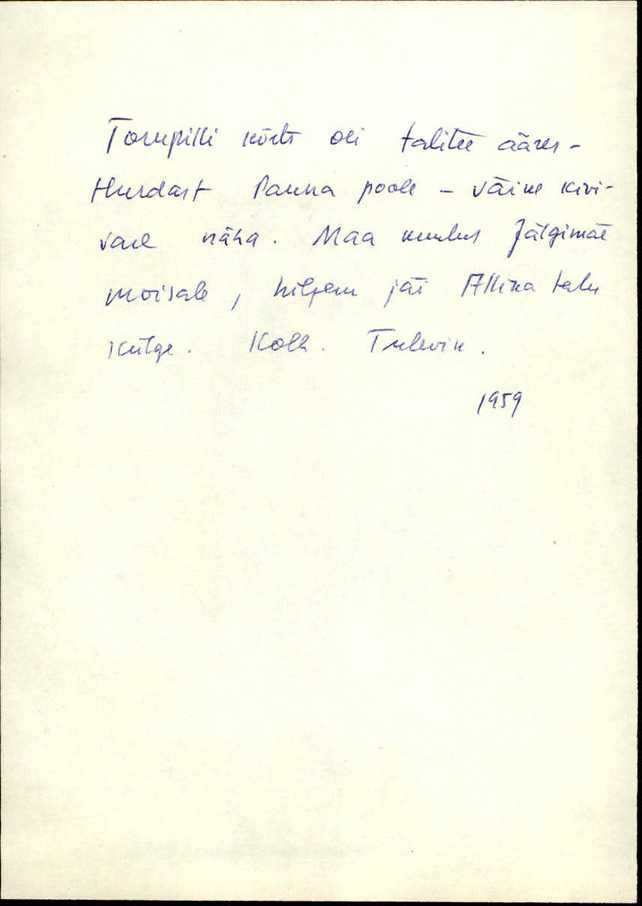 Torupilli kõrts oli talitee ääres -
Hurdast Panna poole - väike kivi-
vare näha. Maa kuulus Jälgimäe
moisale, hiljem jäi Allika talu
külge. Kolk. Tulevik.
1959